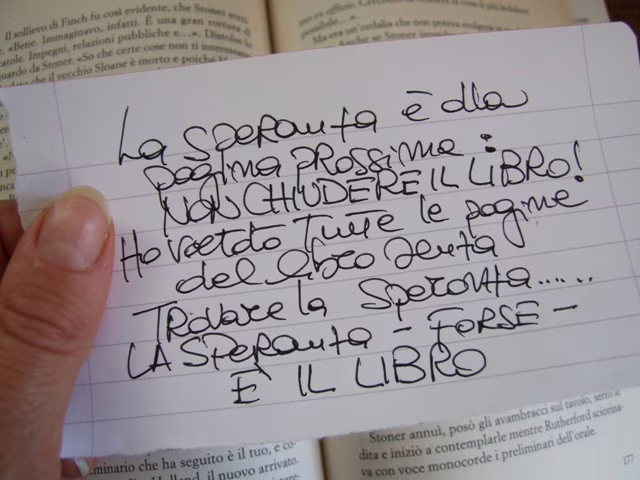 Il sollievo di Finch fu così evidente, che Stoner
«Bene. Immaginavo, infatti. È una gran rottura di
catole. Impegni, relazioni pubbliche e...». Distolse
guardo da Stoner. «So che certe cose non ti
che il vecchio Sloane è morto e poiché
ex officio.
possibile...».
Ma era un'ordalia che non poteva
Anche se Stoner
La SPERANZA è alla
pagina PROSSIMA:
NON CHIUDERE IL LIBRO!
Ho voltato TUTTE le pagine
del libro senza
TROVARE la SPERANZA......
LA SPERANZA - FORSE -
È IL LIBRO
minario che ha seguito è il tuo, e
il nuovo arrivato.
Stoner annuì, posò gli avambracci sul tavolo,
dita e iniziò a contemplarle mentre Rutherford sciorina-
va con voce monocorde i preliminari dell'orale.
177